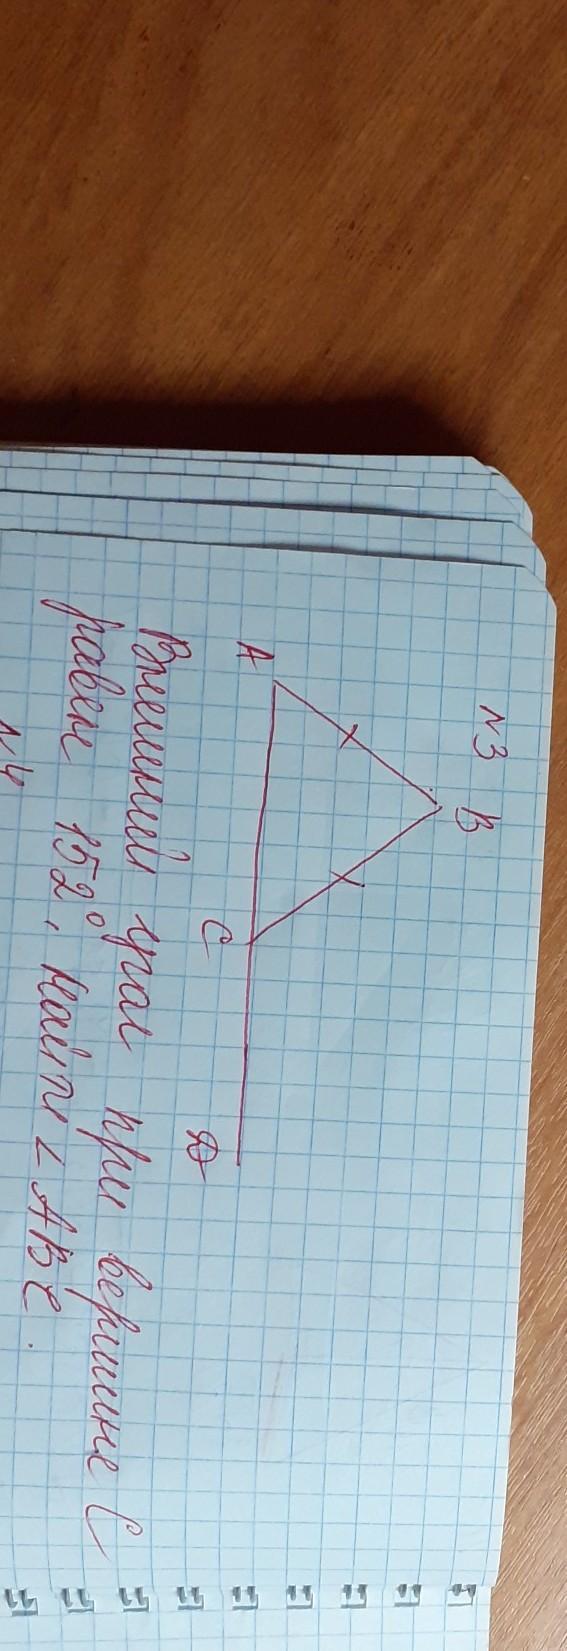 №3
B
A
C
D
Внешний угол при вершине C
равен 152°, найти ∠ABC.
№4